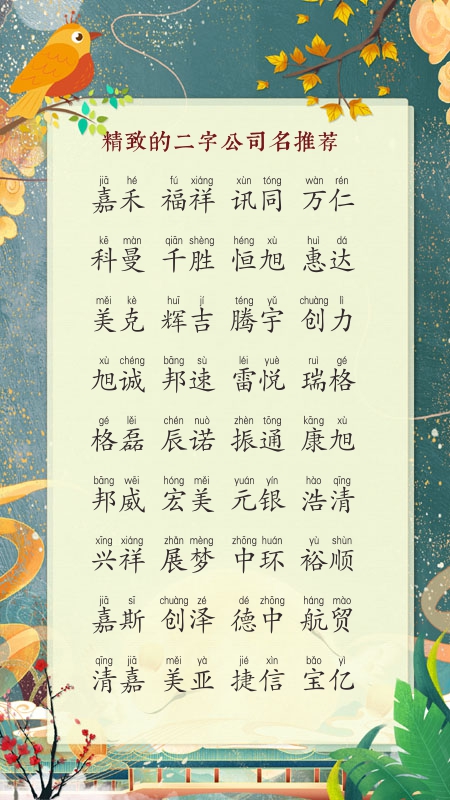 精致的二字公司名推荐
jiā hé fú xiáng xùn tóng wàn rén
嘉禾 福祥 讯同 万仁
kē màn qiān shèng héng xù huì dá
科曼 千胜 恒旭 惠达
měi kè huī jí téng yǔ chuàng lì
美克 辉吉 腾宇 创力
xù chéng bāng sù léi yuè ruì gé
旭诚 邦速 雷悦 瑞格
gé lěi chén nuò zhèn tōng kāng xù
格磊 辰诺 振通 康旭
bāng wēi hóng měi yuán yín hào qīng
邦威 宏美 元银 浩清
xīng xiáng zhǎn mèng zhōng huán yù shùn
兴祥 展梦 中环 裕顺
jiā sī chuàng zé dé zhōng háng mào
嘉斯 创泽 德中 航贸
qīng jiā měi yà jié xìn bǎo yì
清嘉 美亚 捷信 宝亿